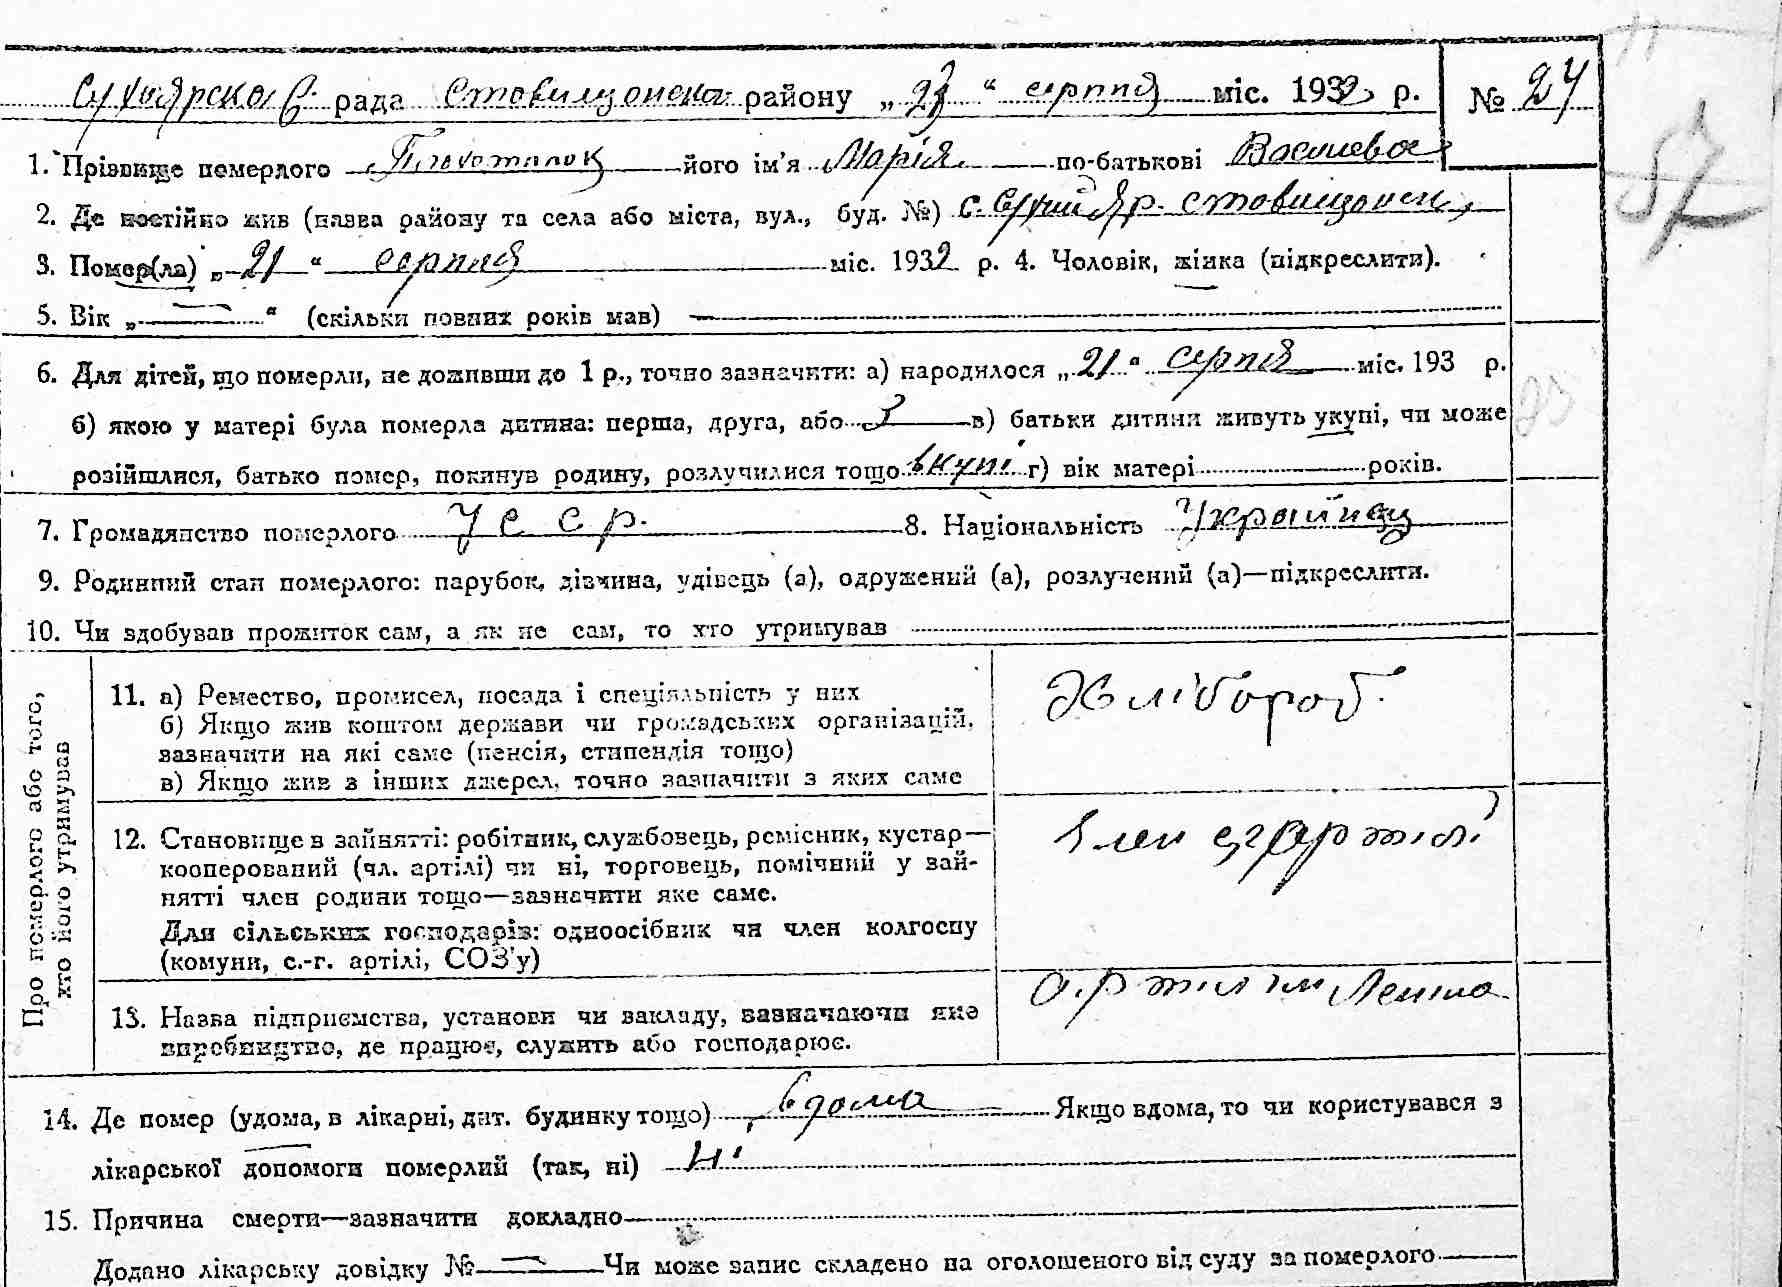 Сухоярска С. рада Ставищанська району „23“ серпня міс. 1932 р. № 24
1. Прізвище померлого його ім’я Марія по-батькові
57
2. Де постійно жив (назва району та села або міста, вул., буд. №) с. Сухий Яр.
3. Помер(ла) „21“ серпня міс. 1932 р. 4. Чоловік, жінка (підкреслити).
5. Вік „—“ (скільки повних років мав)
6. Для дітей, що померли, не доживши до 1 р., точно зазначити: а) народилося „21“ серпня міс. 193 р.
б) якою у матері була померла дитина: перша, друга, або 3 в) батьки дитини живуть укупі, чи може
розійшлися, батько помер, покинув родину, розлучилися тощо вкупі г) вік матері років.
7. Громадянство померлого УССР. 8. Національність
9. Родинний стан померлого: парубок, дівчина, удівець (а), одружений (а), розлучений (а)—підкреслити.
10. Чи здобував прожиток сам, а як не сам, то хто утримував
Про померлого або того,
хто його утримував
11. а) Ремество, промисел, посада і спеціяльність у них
б) Якщо жив коштом держави чи громадських організацій,
зазначити на які саме (пенсія, стипендія тощо)
в) Якщо жив з інших джерел, точно зазначити з яких саме
Хлібороб.
12. Становище в зайнятті: робітник, службовець, ремісник, кустар—
кооперований (чл. артілі) чи ні, торговець, помічний у зай-
нятті член родини тощо—зазначити яке саме.
Для сільських господарів: одноосібник чи член колгоспу
(комуни, с.-г. артілі, СОЗ’у)
Член
13. Назва підприємства, установи чи закладу, зазначаючи яке
виробництво, де працює, служить або господарює.
Леніна
14. Де помер (удома, в лікарні, дит. будинку тощо) вдома Якщо вдома, то чи користувався з
лікарської допомоги померлий (так, ні) ні
15. Причина смерти—зазначити докладно
Додано лікарську довідку № — Чи може запис складено на оголошеного від суду за померлого